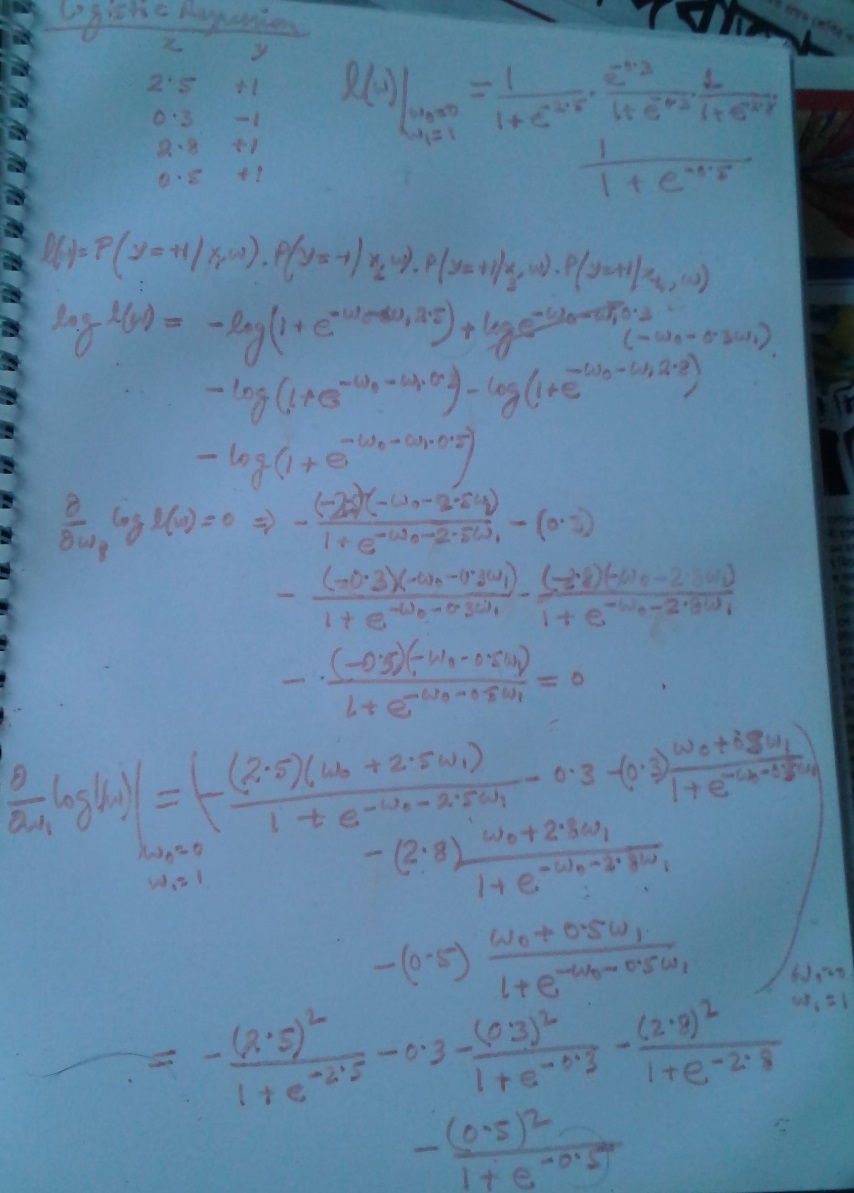 Logistic Regression
x y
2.5 +1
0.3 -1
2.8 +1
0.5 +1
l(w)|_{w₀=0, w₁=1} = 1/(1+e^{-2.5}) · e^{-0.3}/(1+e^{-0.3}) · 1/(1+e^{-2.8})
1/(1+e^{-0.5})
l(w) = P(y=+1/x₁,w) . P(y=-1/x₂,w) . P(y=+1/x₃,w) . P(y=+1/x₄,w)
log l(w) = -log(1+e^{-w₀-w₁2.5}) + log e^{-w₀-w₁0.3} (-w₀-0.3w₁)
-log(1+e^{-w₀-w₁0.3}) - log(1+e^{-w₀-w₁2.8})
-log(1+e^{-w₀-w₁0.5})
∂/∂w₁ log l(w) = 0 ⇒ - (-2.5)(-w₀-2.5w₁)/(1+e^{-w₀-2.5w₁}) - (0.3)
- (-0.3)(-w₀-0.3w₁)/(1+e^{-w₀-0.3w₁}) - (-2.8)(-w₀-2.8w₁)/(1+e^{-w₀-2.8w₁})
- (-0.5)(-w₀-0.5w₁)/(1+e^{-w₀-0.5w₁}) = 0
∂/∂w₁ log l(w)|_{w₀=0, w₁=1} = (- (2.5)(w₀+2.5w₁)/(1+e^{-w₀-2.5w₁}) - 0.3 - (0.3) (w₀+0.3w₁)/(1+e^{-w₀-0.3w₁})
- (2.8) (w₀+2.8w₁)/(1+e^{-w₀-2.8w₁})
- (0.5) (w₀+0.5w₁)/(1+e^{-w₀-0.5w₁}) )_{w₀=0, w₁=1}
= - (2.5)²/(1+e^{-2.5}) - 0.3 - (0.3)²/(1+e^{-0.3}) - (2.8)²/(1+e^{-2.8})
- (0.5)²/(1+e^{-0.5})